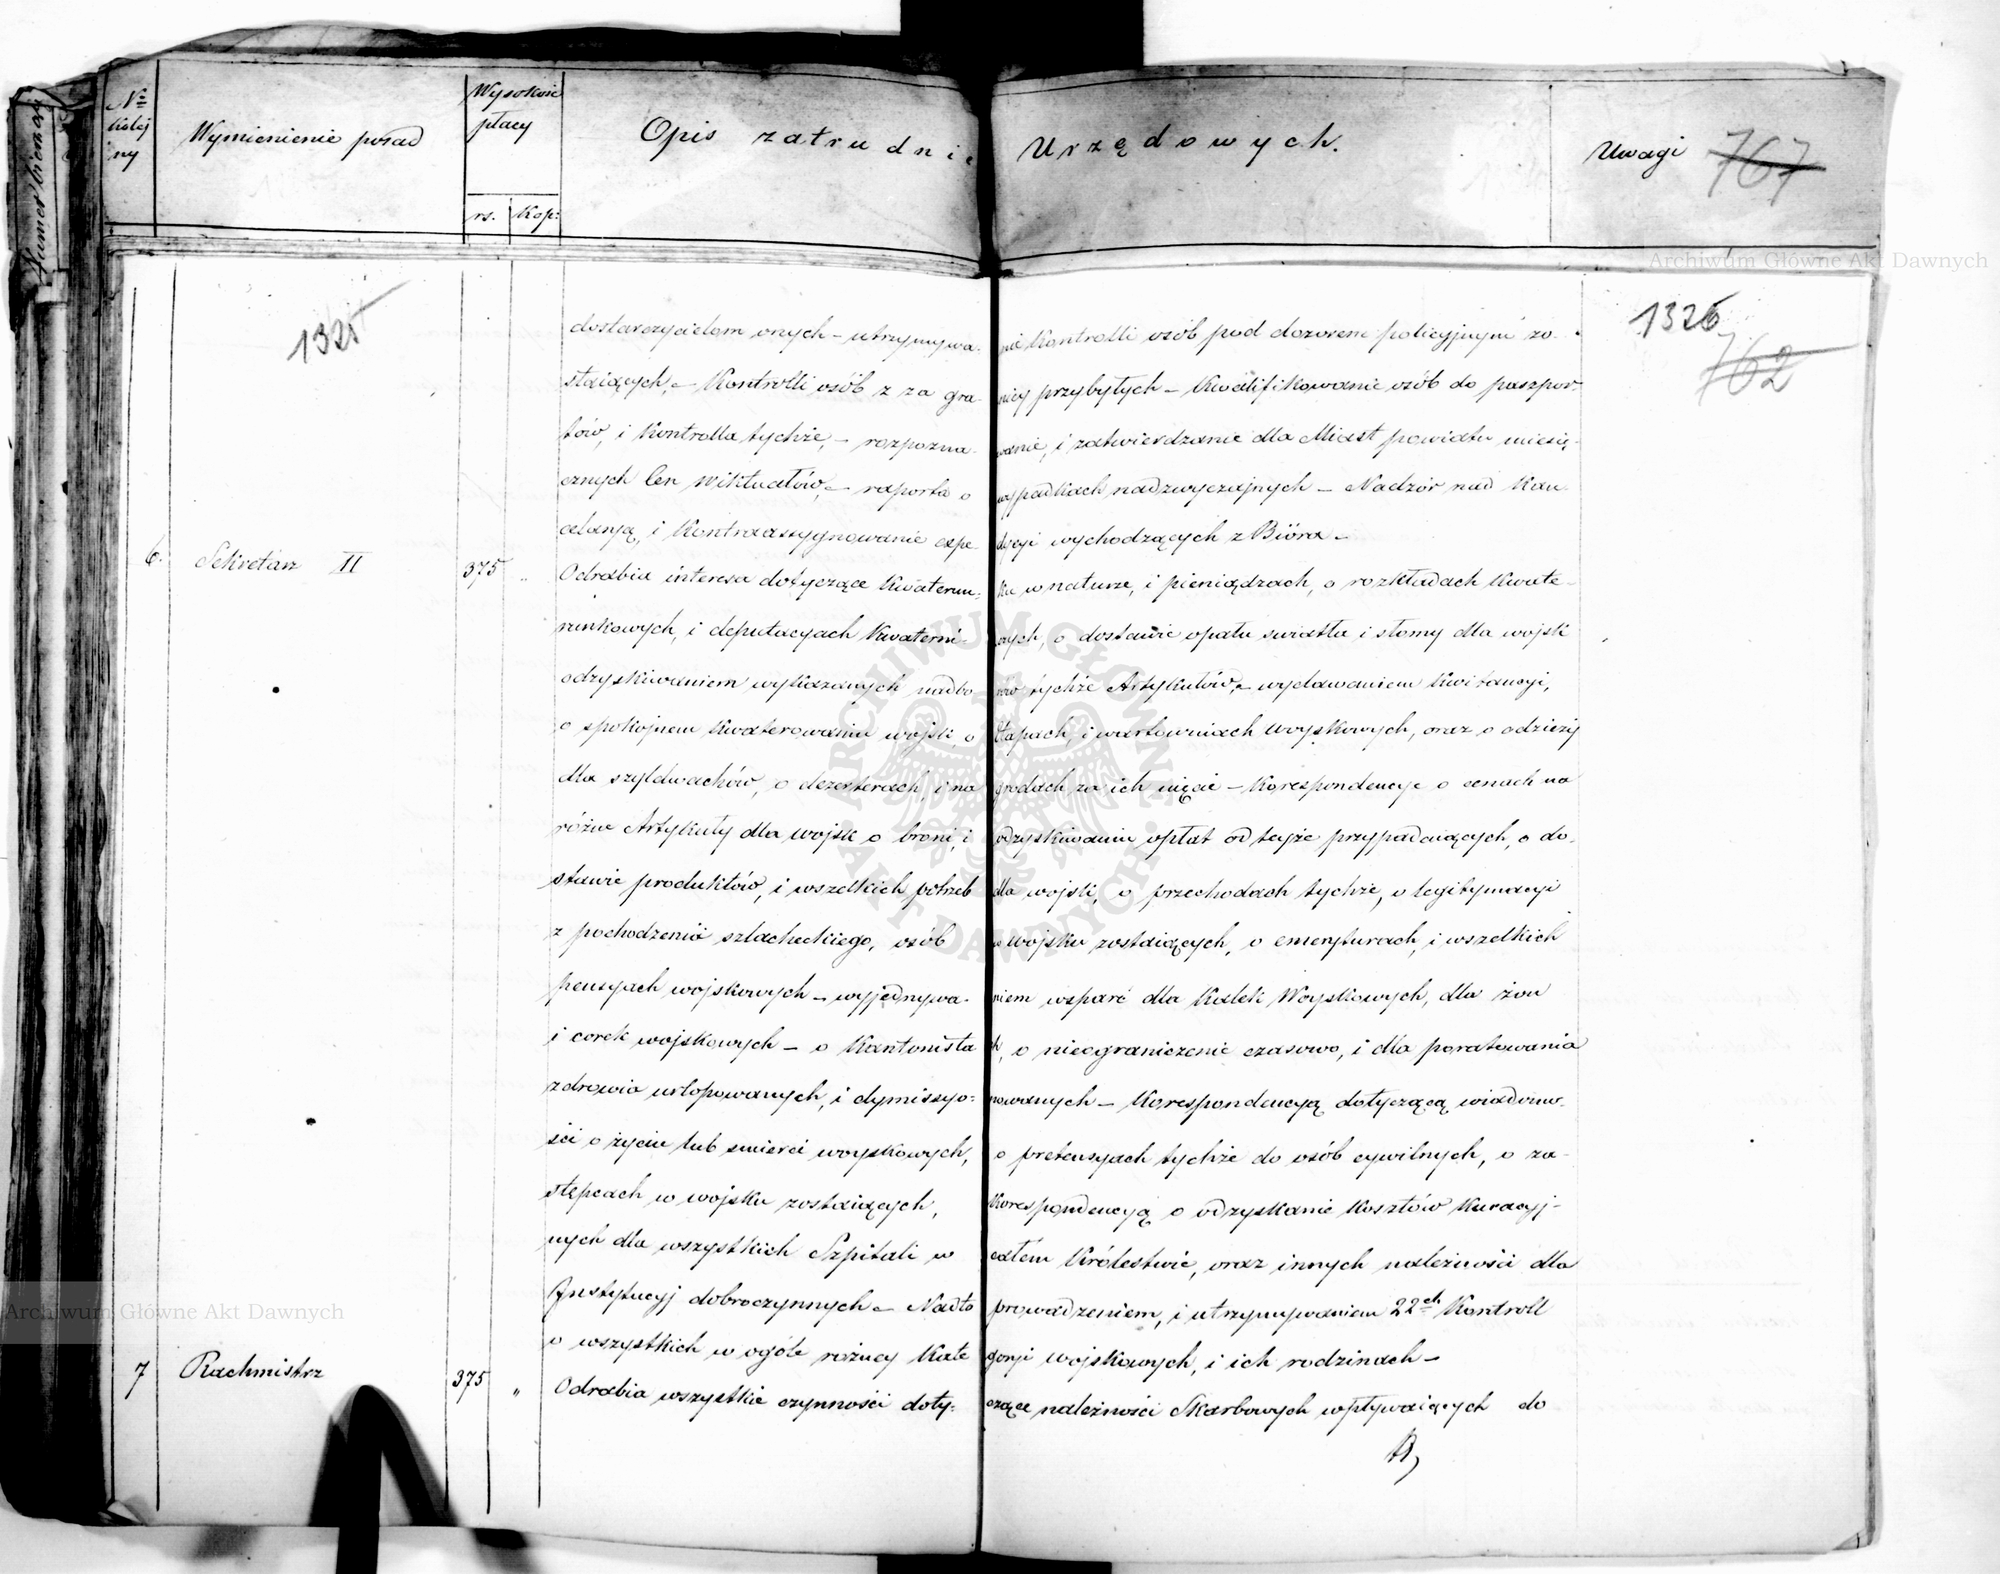 Numer bieżący
№ kolejny
Wymienienie posad
Wysokość
płacy
rs. Kop:
Opis zatrudnie Urzędowych.
Uwagi
767
1325
1326
762
dostarczycielom onych – utrzymywa- nie Kontrolli osób pod dozorem policyjnym zo-
staiących, – Kontrolli osób z za gra- nicy przybyłych – Kwalifikowanie osób do paszpor-
tów, i Kontrolla tychże, – rozpozna- wanie, i zatwierdzanie dla Miast powiatu miesię-
cznych Cen Wiktuałów, – raporta o wypadkach nadzwyczajnych – Nadzór nad Kan-
celaryą, i Kontraassygnowanie expe- dycyi wychodzących z Bióra –
6. Sekretarz II 375 „ Odrabia interesa dotyczące Kwaterun- ku w naturze, i pieniądzach, o rozkładach Kwate-
runkowych, i deputacyach Kwaterni- czych, o dostawie opału swiatła i słomy dla wojsk
odzyskiwaniem wykazanych nadbo- rów tychże Artykułów, – wydawaniem Kwitancyi,
o spokojnem Kwaterowaniu wojsk, o Etapach, i wartowniach woyskowych, oraz o odzieży
dla szyldwachów, o dezerterach, i na grodach za ich ujęcie – Korespondencye o cenach na
różne Artykuły dla wojsk o broni, i odzyskiwaniu opłat od tejże przypadaiących, o do-
stawie produktów, i wszelkich potrzeb dla wojsk, o przechodach tychże, o legitymacyi
z pochodzenia szlacheckiego, osób w wojsku zostaiących, o emeryturach, i wszelkich
pensyach wojskowych – wyjednywa- niem wsparć dla Kalek Woyskowych, dla żon
i corek wojskowych – o Kantonista ch, o nieograniczenie czasowo, i dla poratowania
zdrowia urlopowanych, i dymissyo- nowanych – Korespondencyą dotyczącą wiadomo-
ści o życiu lub smierci woyskowych, o pretensyach tychże do osób cywilnych, o za-
stępcach w wojsku zostaiących, Korespondencyą o odzyskanie Kosztów Kuracyj-
nych dla wszystkich Szpitali w całem Królestwie, oraz innych należności dla
Instytucyj dobroczynnych – Nadto prowadzeniem, i utrzymywaniem 22ch Kontroll
o wszystkich w ogóle różnej Kate gorji wojskowych, i ich rodzinach –
7 Rachmistrz 375 „ Odrabia wszystkie czynności doty- czące należności Skarbowych wpływaiących do
Archiwum Główne Akt Dawnych
ARCHIWUM GŁÓWNE AKT DAWNYCH
Archiwum Główne Akt Dawnych